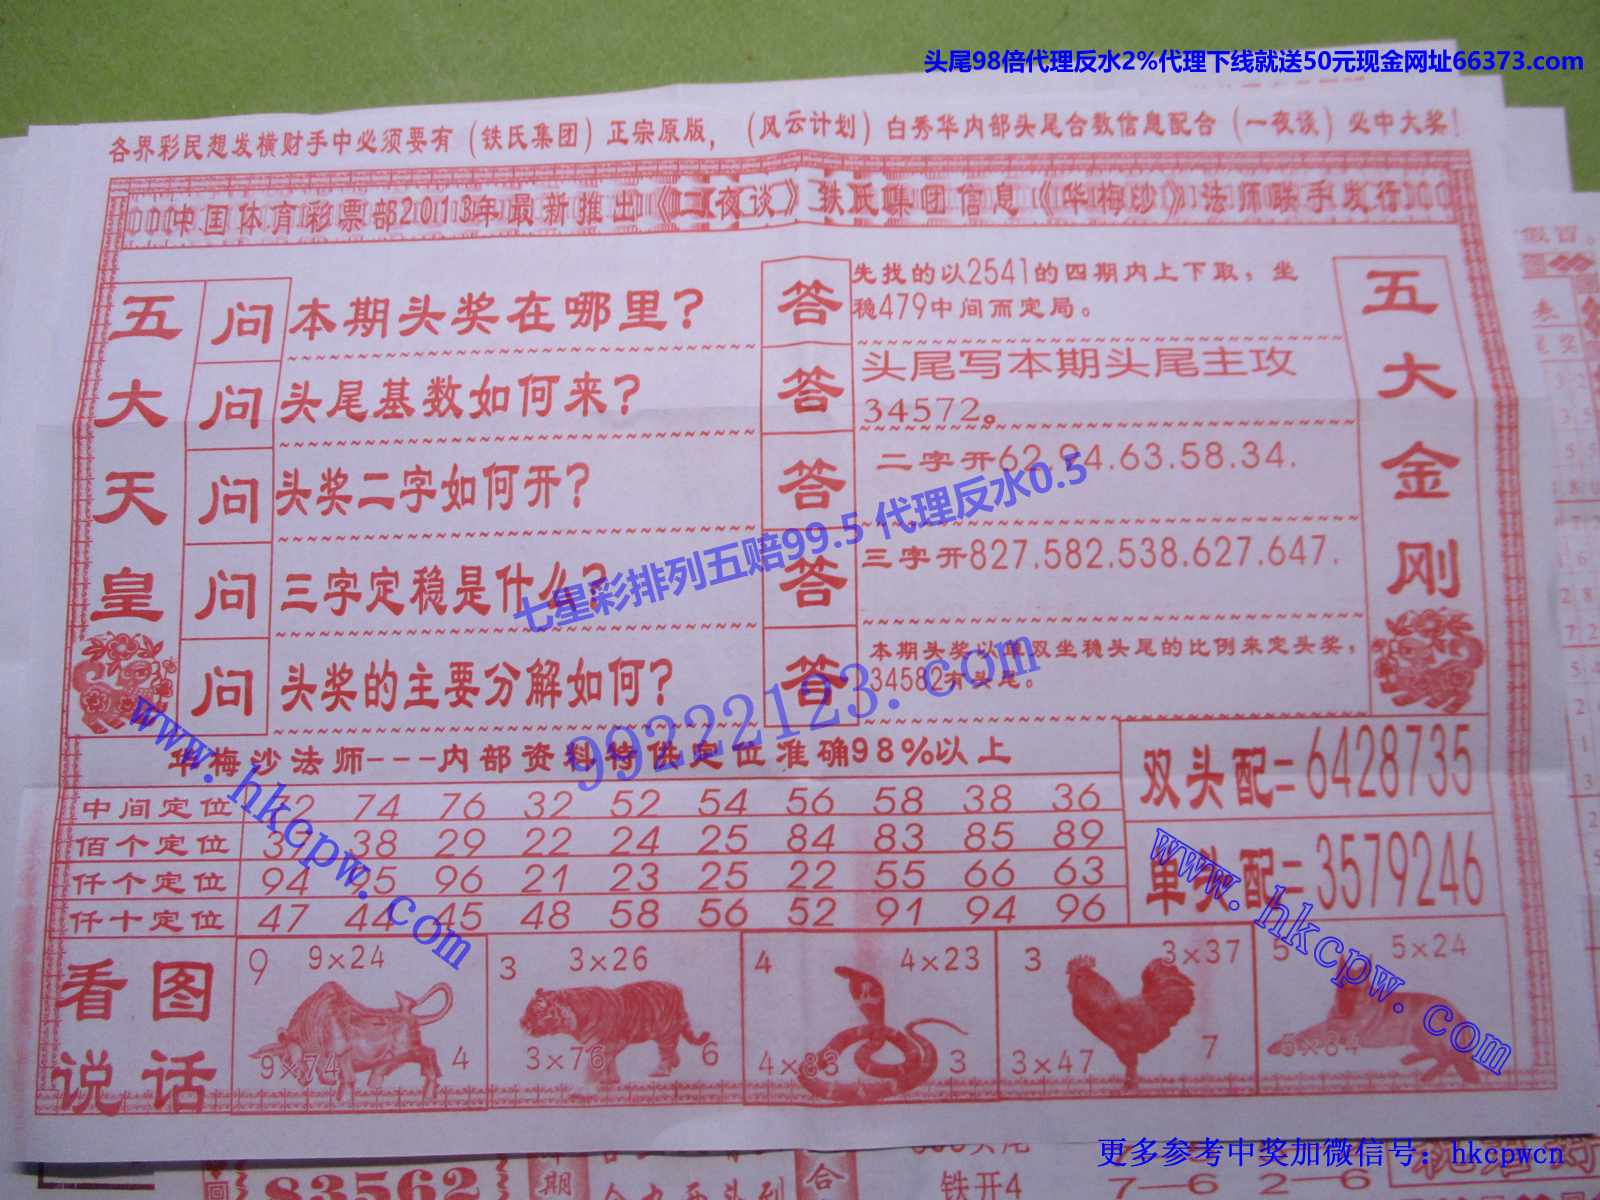 头尾98倍代理反水2%代理下线就送50元现金网址66373.com
各界彩民想发横财手中必须要有（铁氏集团）正宗原版，（风云计划）白秀华内部头尾合数信息配合（一夜谈）必中大奖！
中国体育彩票部2013年最新推出《二夜谈》铁氏集团信息《华梅沙》法师联手发行
五大天皇
问 本期头奖在哪里？
答 先找的以2541的四期内上下取，坐
稳479中间而定局。
问 头尾基数如何来？
答 头尾写本期头尾主攻
34572。
问 头奖二字如何开？
答 二字开62.94.63.58.34.
问 三字定稳是什么？
答 三字开827.582.538.627.647.
问 头奖的主要分解如何？
答 本期头奖以单双坐稳头尾的比例来定头奖，
34582有头尾。
五大金刚
七星彩排列五赔99.5 代理反水0.5
99222123.com
www.hkcpw.com
华梅沙法师---内部资料特供定位准确98%以上
中间定位 72 74 76 32 52 54 56 58 38 36
佰个定位 37 38 29 22 24 25 84 83 85 89
仟个定位 94 95 96 21 23 25 22 55 66 63
仟十定位 47 44 45 48 58 56 52 91 94 96
双头配=6428735
单头配=3579246
www.hkcpw.com
看图说话
9 9×24
9×74 4
3 3×26
3×76 6
4 4×23
4×83 3
3 3×37
3×47 7
5 5×24
5×84
更多参考中奖加微信号：hkcpwcn
83562
期
合
铁开4
7—6 2—6